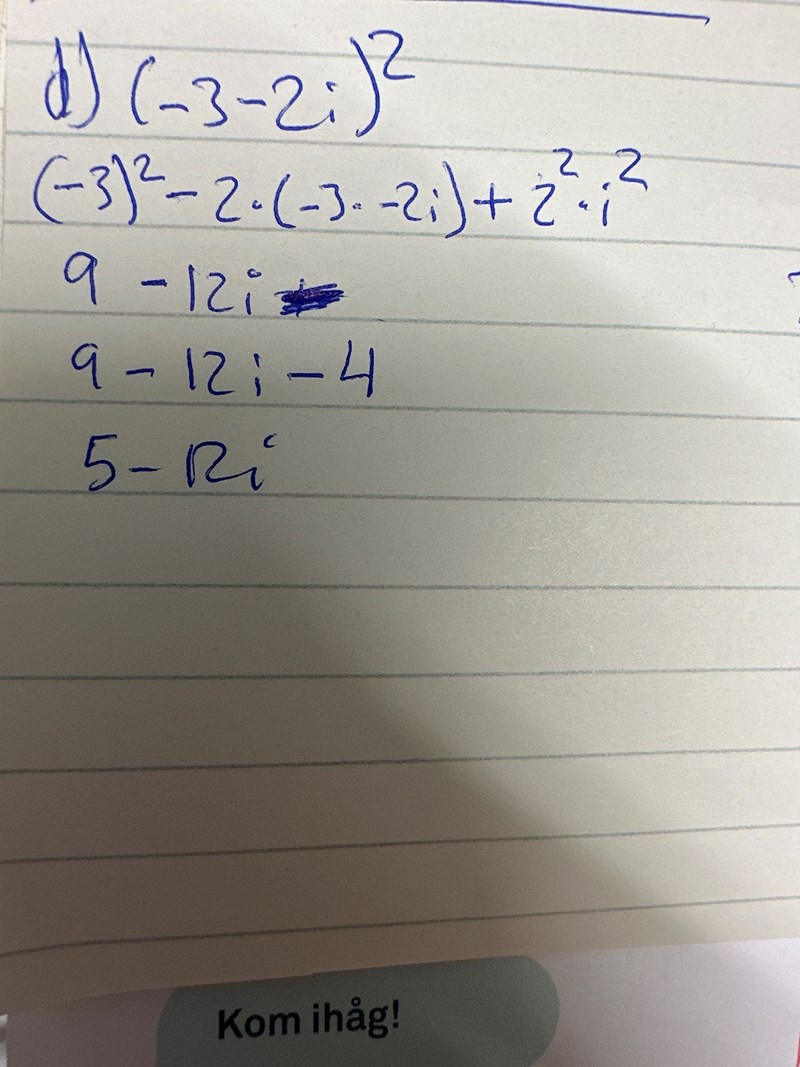 d) (-3-2i)²
(-3)² - 2·(-3·-2i) + 2²·i²
9 - 12i
9 - 12i - 4
5 - 12i
Kom ihåg!